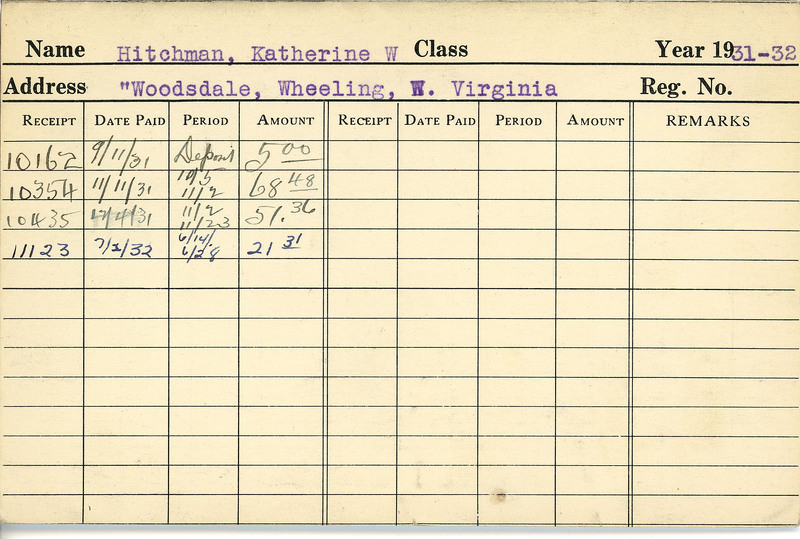 Name Hitchman, Katherine W Class Year 1931-32
Address "Woodsdale, Wheeling, W. Virginia Reg. No.
RECEIPT DATE PAID PERIOD AMOUNT RECEIPT DATE PAID PERIOD AMOUNT REMARKS
10162 9/11/31 Deposit 5 00
10354 11/11/31 10/5 11/2 68 48
10435 12/4/31 11/2 11/23 51.36
11123 7/2/32 6/14/ 6/28 21 31